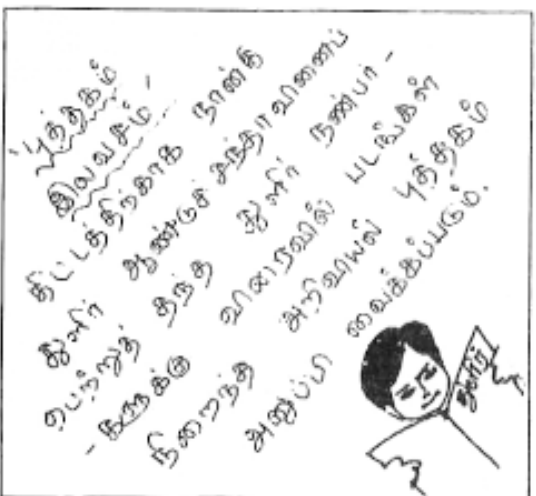 'புத்தகம்
இலவசம்'
திட்டத்திற்காக நான்கு
துளிர் ஆண்டுச் சந்தாவினைப்
பெற்றுத் தந்த துளிர் நண்பர் -
- களுக்கு விரைவில் படங்கள்
நிறைந்த அறிவியல் புத்தகம்
அனுப்பி வைக்கப்படும்.
துளிர்